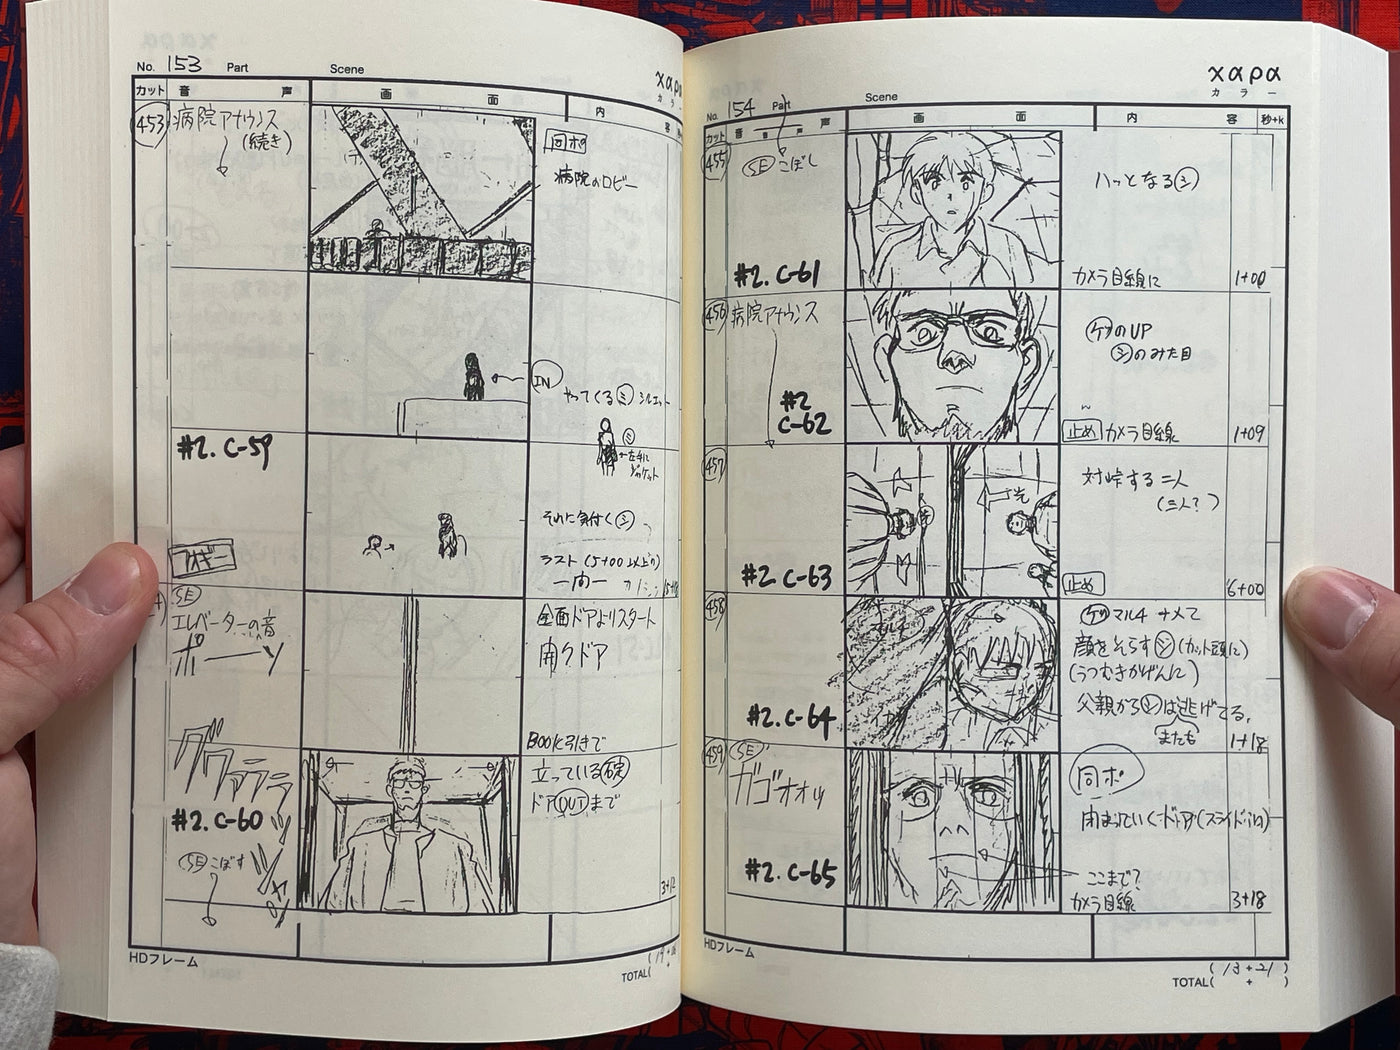 No. 153 Part Scene χαρα
カラー
カット 音 声 画 面 内 容
453 病院アナウンス
(続き)
同ポ
病院のロビー
IN
やってくるミ シルエット
ミ
←左手に
ジャケット
#2. C-59
それに気付くシ
ラスト(5+00以上の)
一同一
SE
エレベーターの音
ポーーッ
全面ドアよりスタート
開クドア
BOOK引きで
#2. C-60
SE こぼす
立っている碇
ドアOUTまで
HDフレーム
TOTAL(
No. 154 Part Scene χαρα
カラー
カット 音 声 画 面 内 容 秒+k
455 SE こぼし
ハッとなるシ
#2. C-61
カメラ目線に 1+00
456 病院アナウンス
ゲのUP
シのみた目
#2
C-62
止め カメラ目線 1+09
457
対峙する二人
(三人?)
#2 C-63
止め 6+00
458
マルチ
ゲマルチナメて
顔をそらすシ(カット頭に)
(うつむきかげんに)
父親からシは逃げてる。
またも
#2. C-64
1+18
459 SE
ガゴオオッ
同ポ
閉まっていくドア(スライドin)
#2. C-65
ここまで?
カメラ目線 3+18
HDフレーム
(13+21)
TOTAL( + )